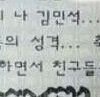 이 나 김민석...
의 성격...
하면서 친구들